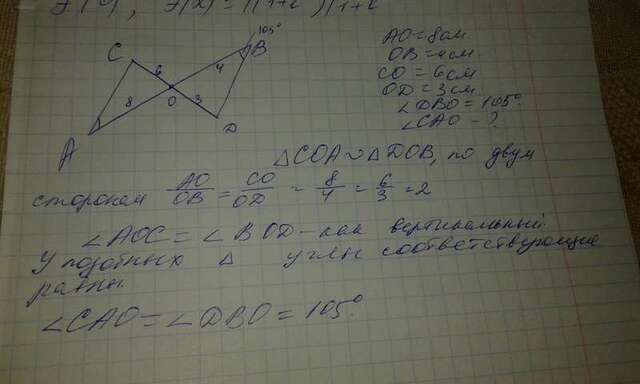 C
105°
B
6
4
8
O
3
A
D
AO = 8 см
OB = 4 см
CO = 6 см
OD = 3 см
∠DBO = 105°
∠CAO - ?
△COA ∼ △DOB, по двум
сторонам AO/OB = CO/OD = 8/4 = 6/3 = 2
∠AOC = ∠BOD - как вертикальный
У подобных △ углы соответствующие
равны.
∠CAO = ∠DBO = 105°